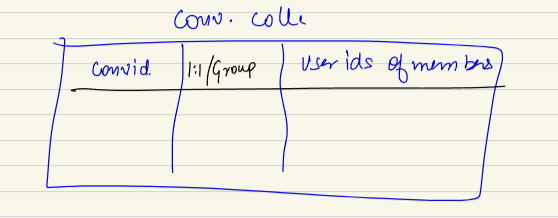 Conv. colle
Convid. 1:1/Group User ids of members